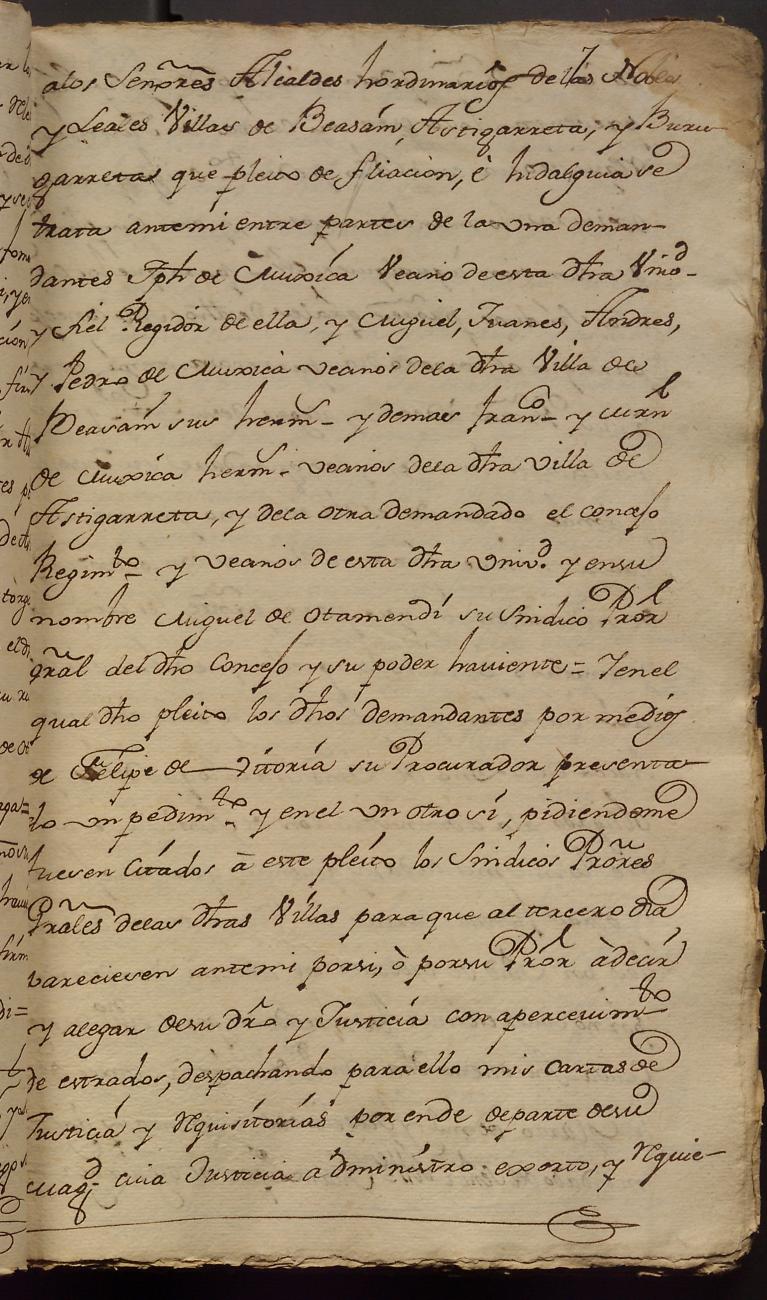 alos Señores Alcaldes hordinarios delas Nobles
y Leales Villas de Beasám, Astigarreta, y Buru
garreta que pleito de filiacion, è hidalguia se
trata antemi entre partes de la vna deman-
dantes Jph de Muxíca Vecino de esta dha Vnibd-
y fiel Regidor de ella, y Miguel, Juanes, Andres,
y Pedro de Muxica vecinos dela dha Villa de
Beasam sus herms- y demas franco- y Mrn
de Muxica herms- vecinos dela dha villa de
Astigarreta, y dela otra demandado el concejo
Regimto- y vecinos de esta dha Vnivd. y ensu
nombre Miguel de Otamendí su Sindico Pror
gral del dho Concejo y su poder haviente= Yenel
qual dho pleito los dhos demandantes por medio
de Felipe de Vitoria su Procurador presenta
lo vn pedimto- y enel vn otro sí, pidiendome
fuesen Citados à este pleito los Sindicos Prores
Grales delas dhas Villas para que al tercero dia
pareciesen antemi porsi, ò porsu Pror àdecir
y alegar desu dro y Justicia con apercevimto
de estrados, despachando para ello mis cartas de
Justicia y requisitorias por ende departe desu
Magd- cuia Justicia administro exorto, y requie-